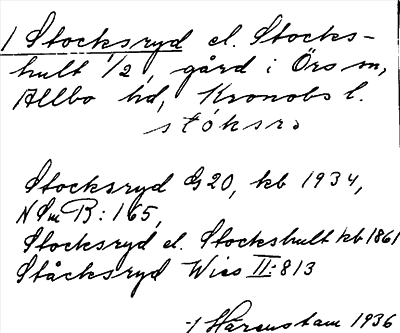 1 Stocksryd el. Stocks-
hult 1/2, gård i Örs sn,
Allbo hd, Kronobs l.
stóksrɔ
Stocksryd G20, kb 1934,
NSmB: 165,
Stocksryd el. Stockshult kb 1861
Ståcksryd Wies II:813
1936